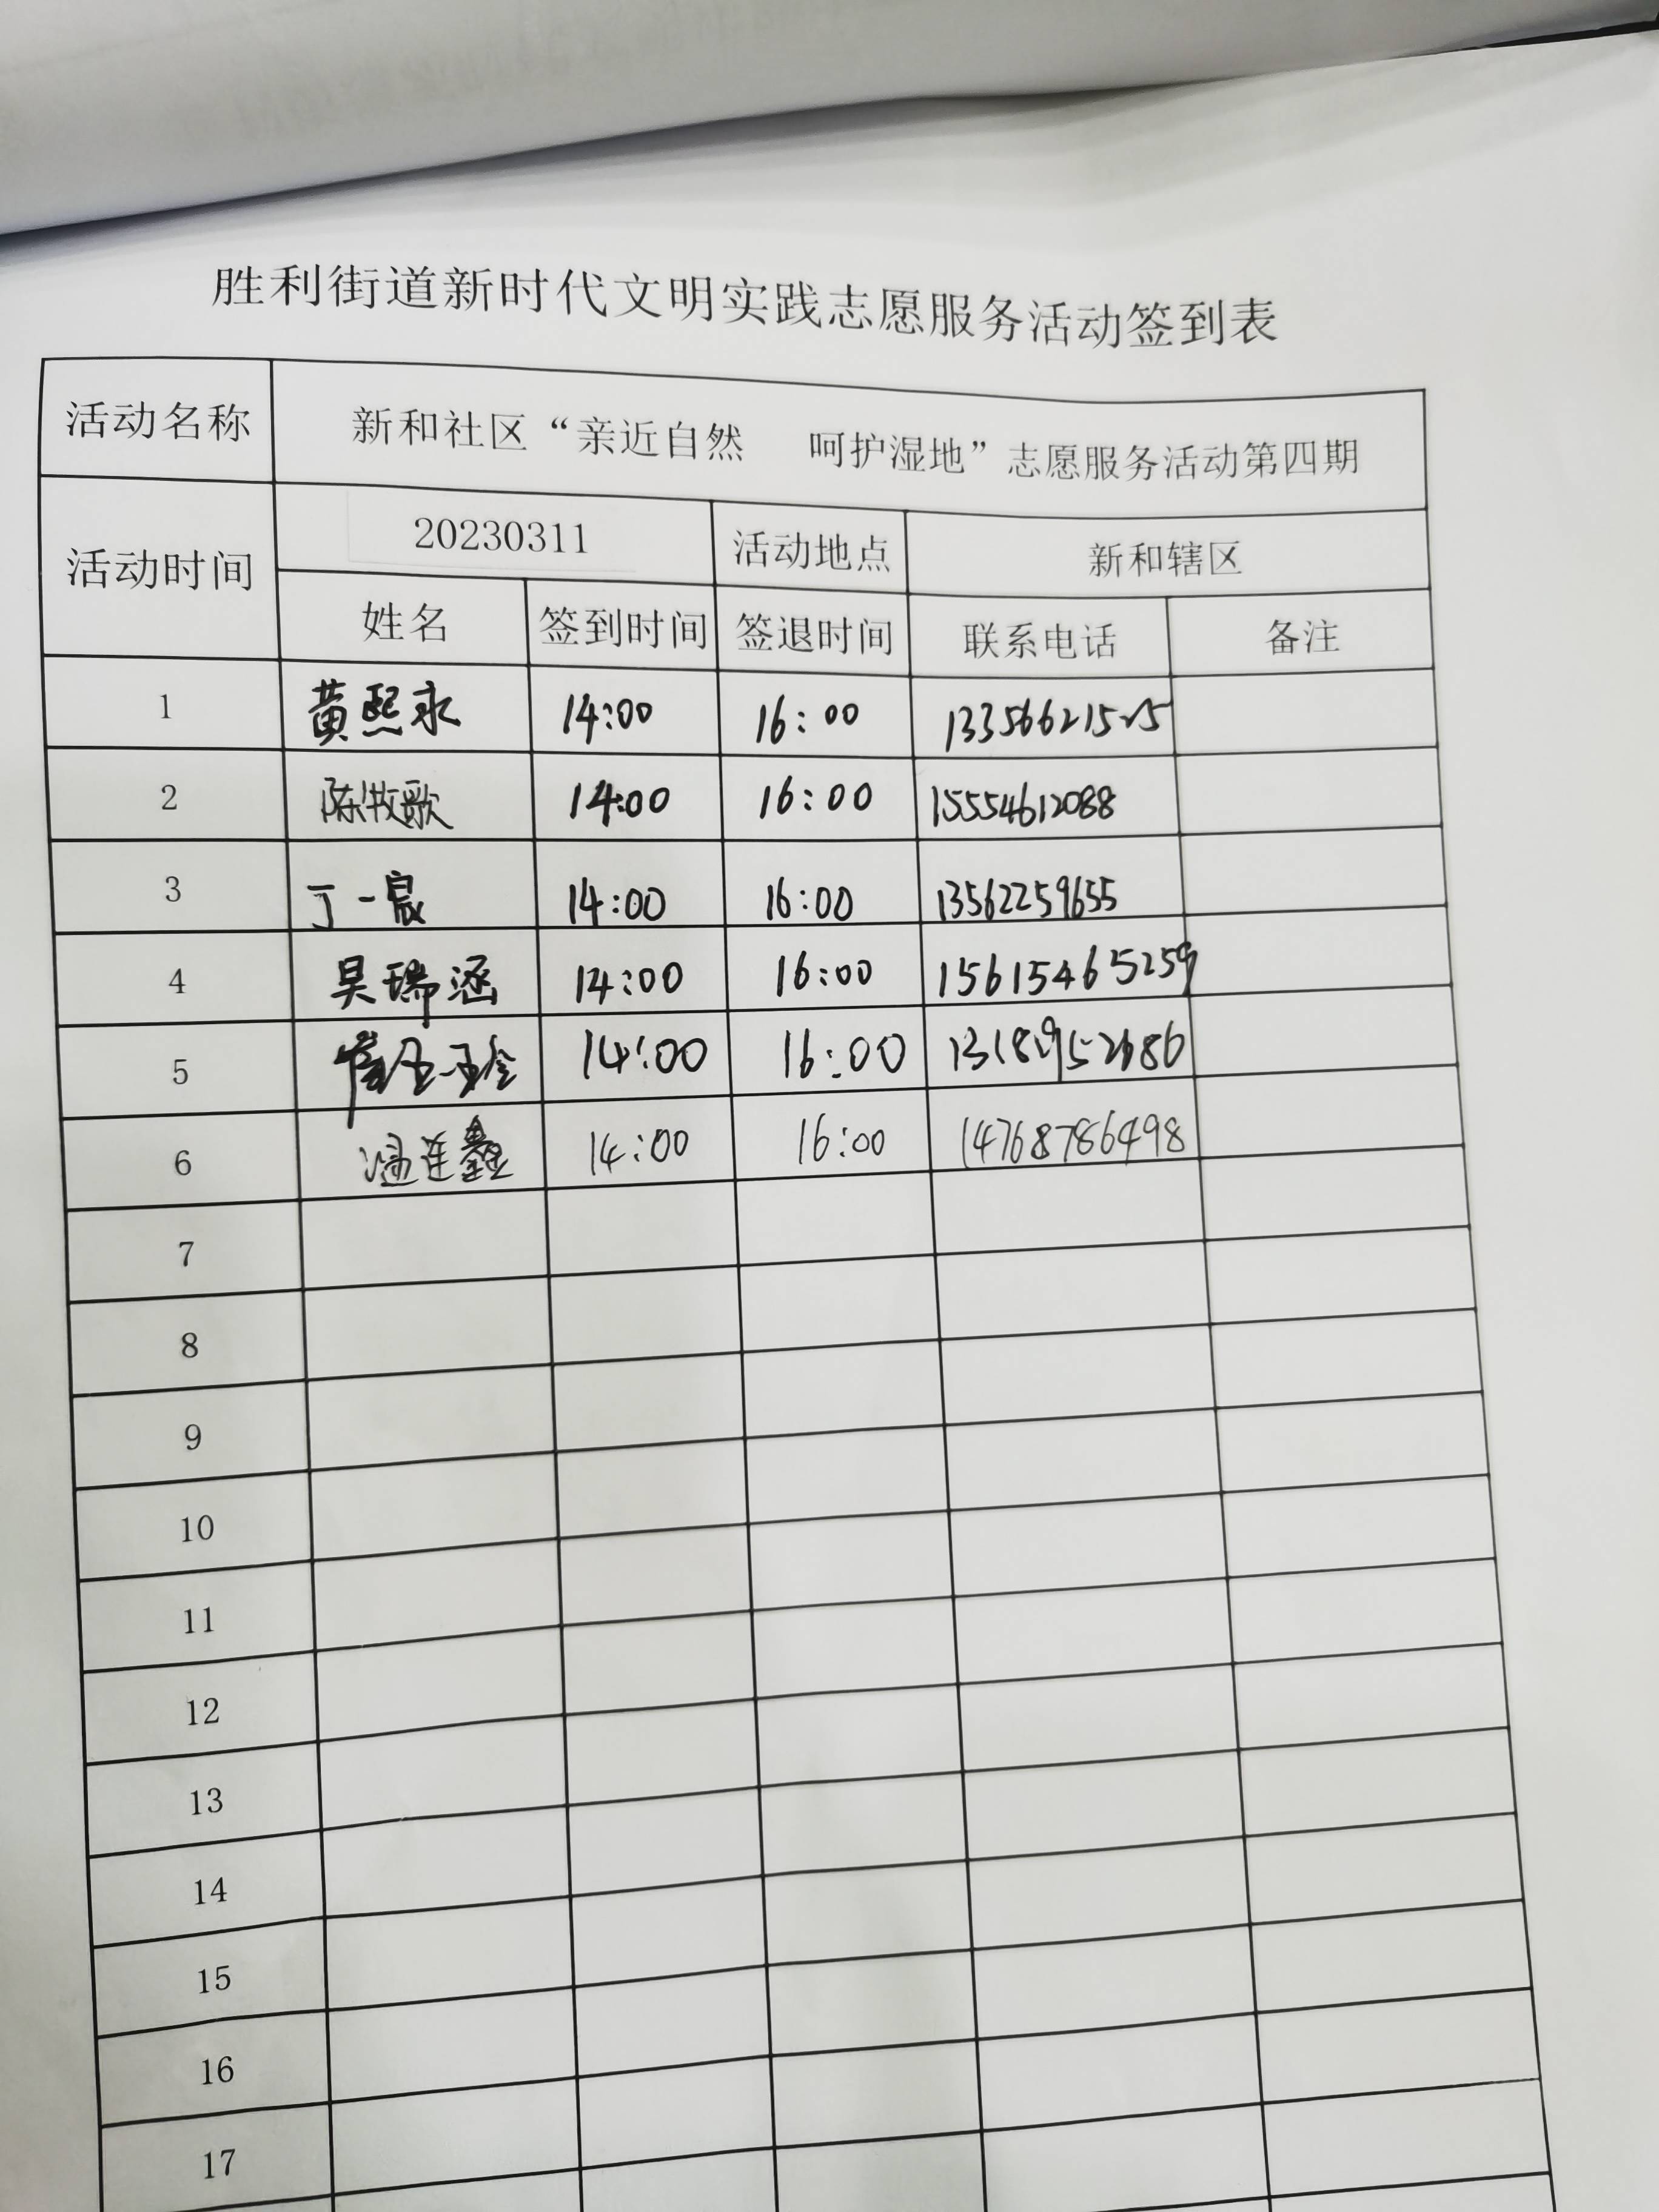 胜利街道新时代文明实践志愿服务活动签到表
活动名称 新和社区“亲近自然 呵护湿地”志愿服务活动第四期
活动时间 20230311 活动地点 新和辖区
姓名 签到时间 签退时间 联系电话 备注
1 黄熙永 14:00 16:00 13356621525
2 陈牧歌 14:00 16:00 15554612088
3 丁一宸 14:00 16:00 13562259655
4 吴瑞涵 14:00 16:00 15615465259
5 14:00 16:00
6 温连鑫 14:00 16:00 14768786498
7
8
9
10
11
12
13
14
15
16
17